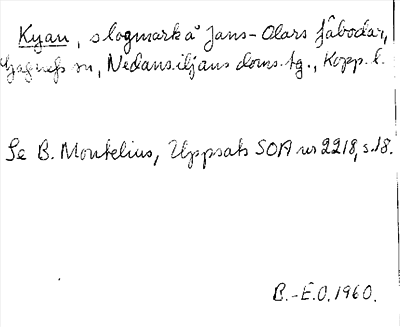 Kyan, slogmark å Jans-Olars fäbodar,
Gagnefs sn, Nedansiljans doms.tg., Kopp. l.
Se B. Montelius, Uppsats SOA nr 2218, s. 18.
B.-E.O. 1960.